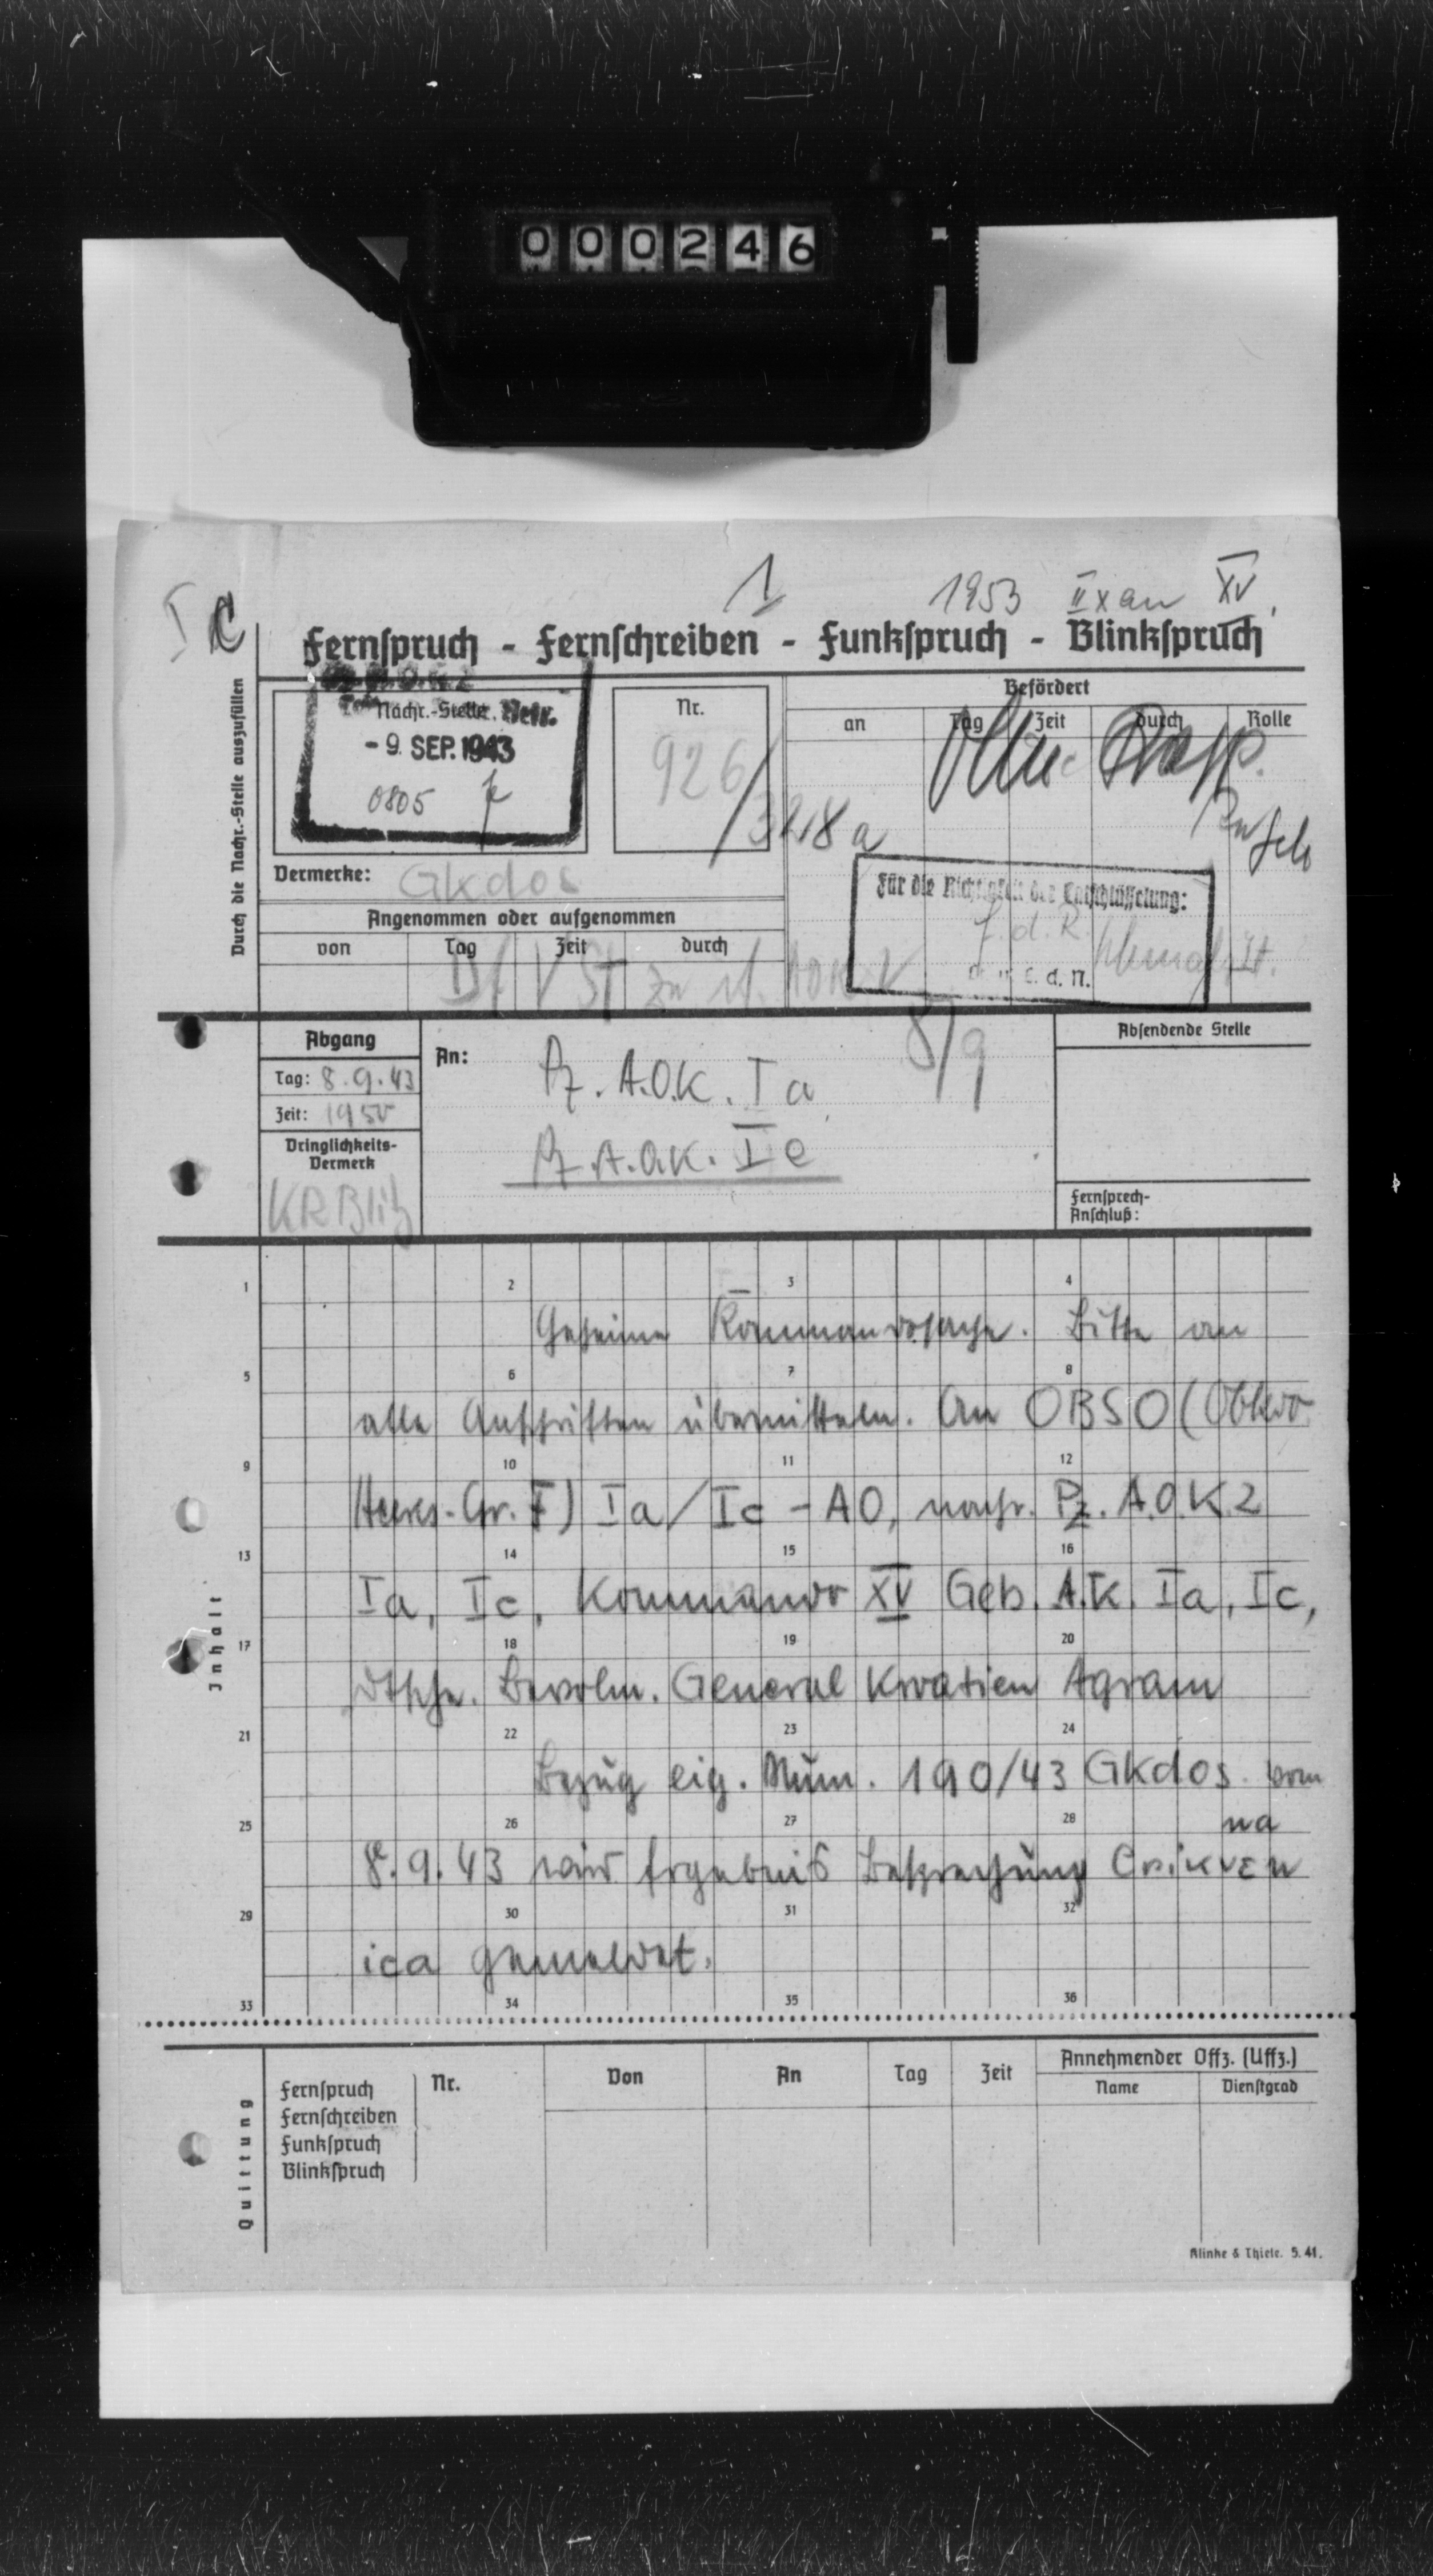 000246
1
1953 IIxan XV.
Ic
Fernspruch - Fernschreiben - Funkspruch - Blinkspruch
Durch die Nachr.-Stelle auszufüllen
Nachr.-Stelle
- 9. SEP. 1943
0805
Nr.
926/
3218a
Befördert
an Tag Zeit durch Rolle
Vermerke: Gkdos
Für die Richtigkeit der Entschlüsselung:
f.d.R.
d. n.
Angenommen oder aufgenommen
von Tag Zeit durch
Abgang
Tag: 8.9.43
Zeit: 1950
Dringlichkeits-
Vermerk
KR Blitz
An: Pz. A.O.K. Ia,
Pz. A.O.K. Ic
8/9
Absendende Stelle
Fernsprech-
Anschluß:
Inhalt
1 2 3 4
Geheime Kommandosache. Bitte an
5 6 7 8
alle Anschriften übermitteln. An OBSO (Obkdo
9 10 11 12
Heeres-Gr. F) Ia/Ic - AO, nachr. Pz. A.O.K. 2
13 14 15 16
Ia, Ic, Kommando XV Geb. A.K. Ia, Ic,
17 18 19 20
Dtsch. Bevolm. General Kroatien Agram
21 22 23 24
Bezug eig. Num. 190/43 Gkdos. vom
25 26 27 28
na
8.9.43 wird Ergebnis Besprechung Crikven
29 30 31 32
ica gemeldet.
33 34 35 36
Quittung
Fernspruch
Fernschreiben
Funkspruch
Blinkspruch
Nr. Von An Tag Zeit
Annehmender Offz. (Uffz.)
Name Dienstgrad
Klinke & Thiele. 5. 41.